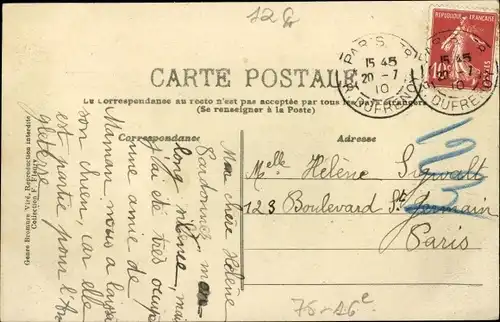 12 G
RÉPUBLIQUE FRANÇAISE
10
POSTES
PARIS
15 45
20 - 7
10
R. DUFRENOY
CARTE POSTALE
La Correspondance au recto n'est pas acceptée par tous les pays étrangers
(Se renseigner à la Poste)
Correspondance
Adresse
Melle Hélène Sigwalt
123 Boulevard St Germain
Paris
123
Ma chère Hélène
Pardonnes mon
long silence, mais
j'ai été très occupée
une amie de
Maman nous a laissé
son chien, car elle
est partie pour l'An
gleterre
Genre Bromure Viré, Reproduction interdite
Collection F. Fleury
75-16e